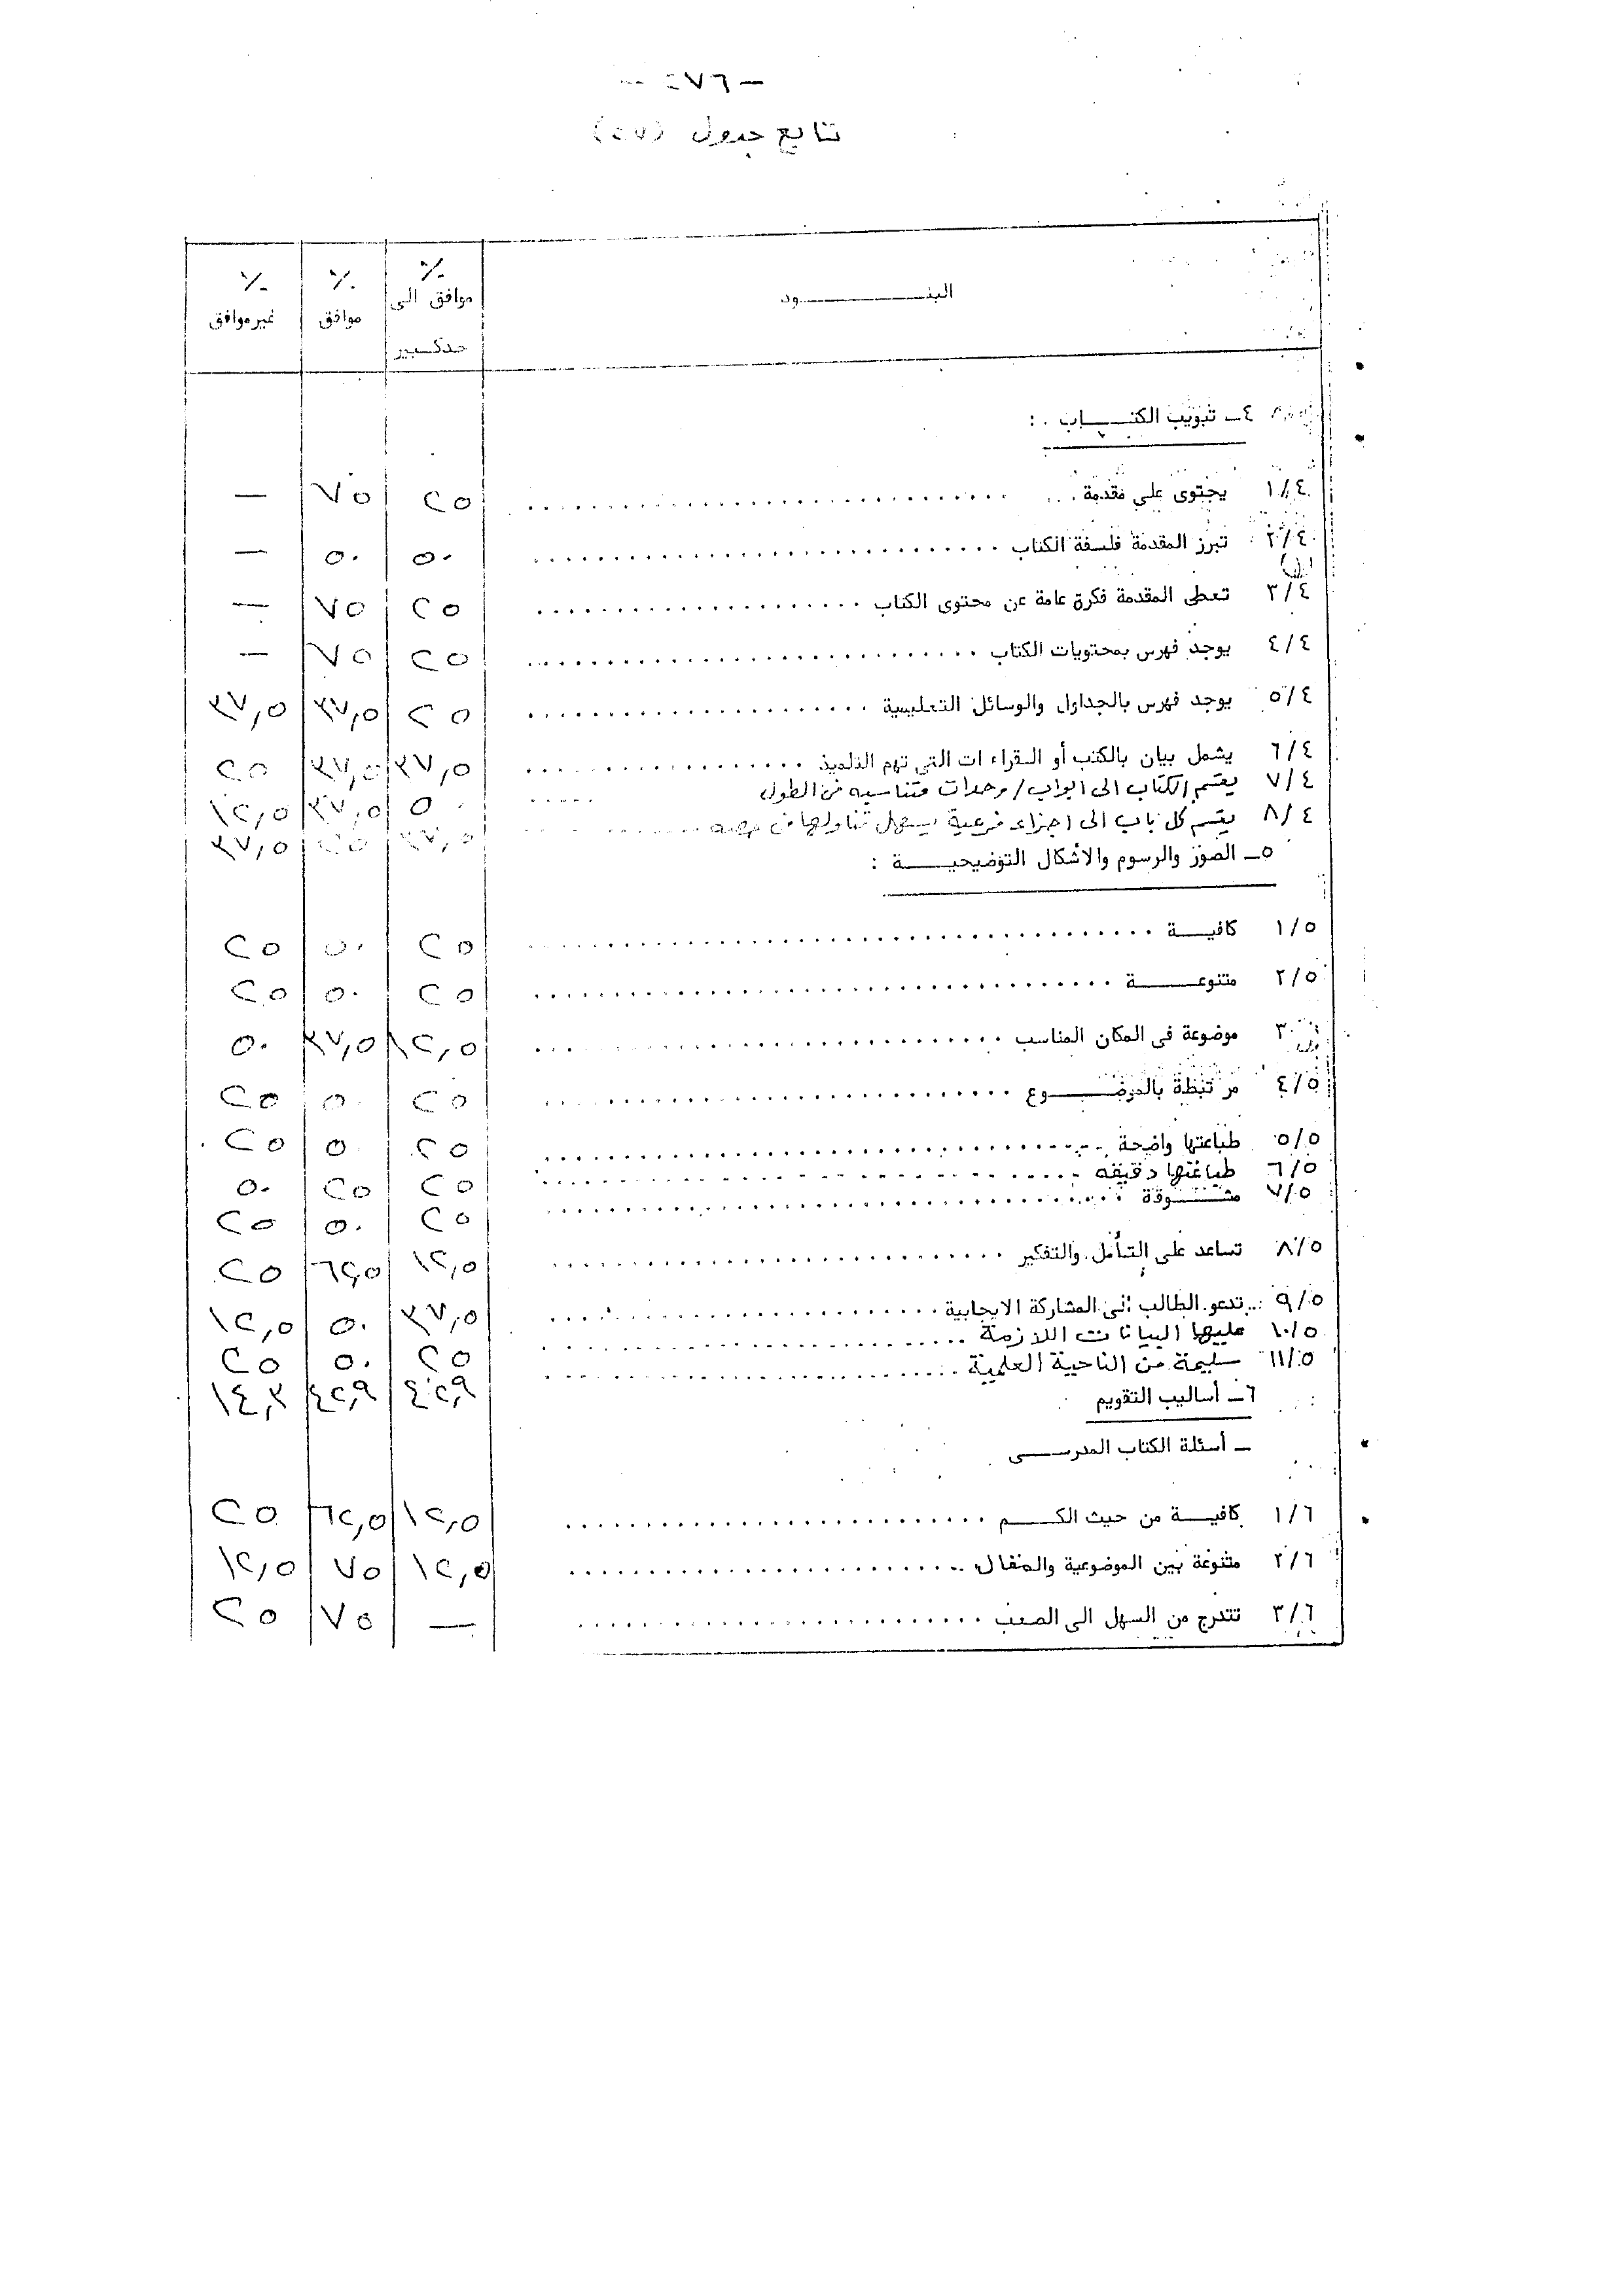 تابع جدول
البنـــــود ٪ موافق الى حد كـبير ٪ موافق ٪ غير موافق
٤ـ تبويب الكتـــاب :
١/٤ يحتوى على مقدمة ٢٥ ٧٥ —
٢/٤ تبرز المقدمة فلسفة الكتاب ٥٠ ٥٠ —
٣/٤ تعطى المقدمة فكرة عامة عن محتوى الكتاب ٢٥ ٧٥ —
٤/٤ يوجد فهرس بمحتويات الكتاب ٢٥ ٧٥ —
٥/٤ يوجد فهرس بالجداول والوسائل التعليمية ٢٥ ٣٧,٥ ٣٧,٥
٦/٤ يشمل بيان بالكتب أو القراءات التى تهم التلميذ ٣٧,٥ ٣٧,٥ ٢٥
٧/٤ يقسم الكتاب الى ابواب / وحدات متناسبه فى الطول ٥٠ ٣٧,٥ ١٢,٥
٨/٤ يقسم كل باب الى اجزاء فرعية يسهل تناولها فى ٣٧,٥ ٢٥ ٣٧,٥
٥ـ الصور والرسوم والأشكال التوضيحيـــة :
١/٥ كافيــة ٢٥ ٥٠ ٢٥
٢/٥ متنوعـــة ٢٥ ٥٠ ٢٥
٣ موضوعة فى المكان المناسب ١٢,٥ ٣٧,٥ ٥٠
٤/٥ مرتبطة بالموضـــوع ٢٥ ٥٠ ٢٥
٥/٥ طباعتها واضحة ٢٥ ٥٠ ٢٥
٦/٥ طباعتها دقيقه ٢٥ ٢٥ ٥٠
٧/٥ مشـــوقة ٢٥ ٥٠ ٢٥
٨/٥ تساعد على التأمل والتفكير ١٢,٥ ٦٢,٥ ٢٥
٩/٥ تدعو الطالب الى المشاركة الايجابية ٣٧,٥ ٥٠ ١٢,٥
١٠/٥ عليها البيانات اللازمة ٢٥ ٥٠ ٢٥
١١/٥ سليمة من الناحية العلمية ٤٢,٩ ٤٢,٩ ١٤,٣
٦ـ أساليب التقويم
ـ أسئلة الكتاب المدرســـى
١/٦ كافيــة من حيث الكـــم ١٢,٥ ٦٢,٥ ٢٥
٢/٦ متنوعة بين الموضوعية والمقال ١٢,٥ ٧٥ ١٢,٥
٣/٦ تتدرج من السهل الى الصعب — ٧٥ ٢٥